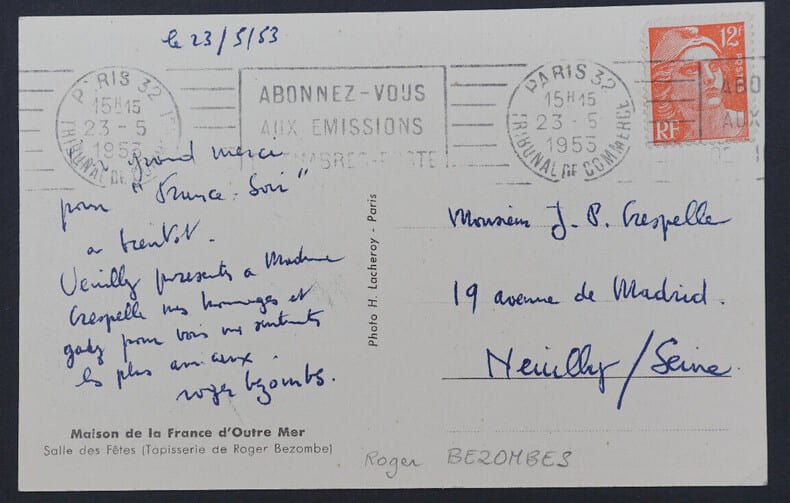 le 23/5/53
PARIS 32
15H15
23-5
1953
TRIBUNAL DE COMMERCE
ABONNEZ-VOUS
AUX EMISSIONS
PARIS 32
15H15
23-5
1953
TRIBUNAL DE COMMERCE
12F
POSTES
RF
ABO
AUX
DE
grand merci
pour "France-Soir"
a bientot.
Veuillez presenter a Madame
Crespelle mes hommages et
gardez pour vous mes sentiments
les plus amicaux.
roger bezombes.
Maison de la France d'Outre Mer
Salle des Fêtes (Tapisserie de Roger Bezombe)
Photo H. Lacheroy - Paris
Monsieur J. P. Crespelle
19 avenue de Madrid.
Neuilly/Seine
Roger BEZOMBES